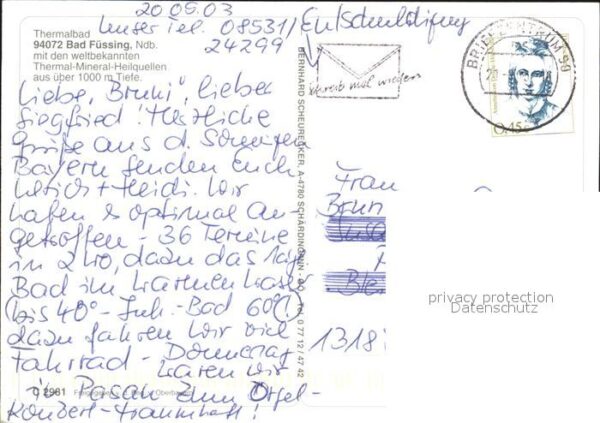 20 09.03
Unser Tel. 08531/
24299
Entschuldigung
Thermalbad
94072 Bad Füssing, Ndb.
mit den weltbekannten
Thermal-Mineral-Heilquellen
aus über 1000 m Tiefe.
Liebe "Bruni", lieber
Siegfried! Herzliche
Grüße aus d. Sonnigen
Bayern senden Euch
Ulrich + Heidi. Wir
haben es optimal an-
getroffen - 36 Termine
in 2 Wo, dazu das tägl.
Bad im warmen Wasser
(bis 40° - Inh.-Bad 60°C)
dazu fahren wir viel
Fahrrad - Donnerstag
waren wir
in Passau zum Orgel-
Konzert - Traumhaft!
C 2981
BERNHARD SCHEURECKER, A-4780 SCHÄRDING/INN
Tel. 0 77 12 / 47 42
Schreib mal wieder
BRIEFZENTRUM 90
0,45€
Frau
Brun
1318
privacy protection
Datenschutz